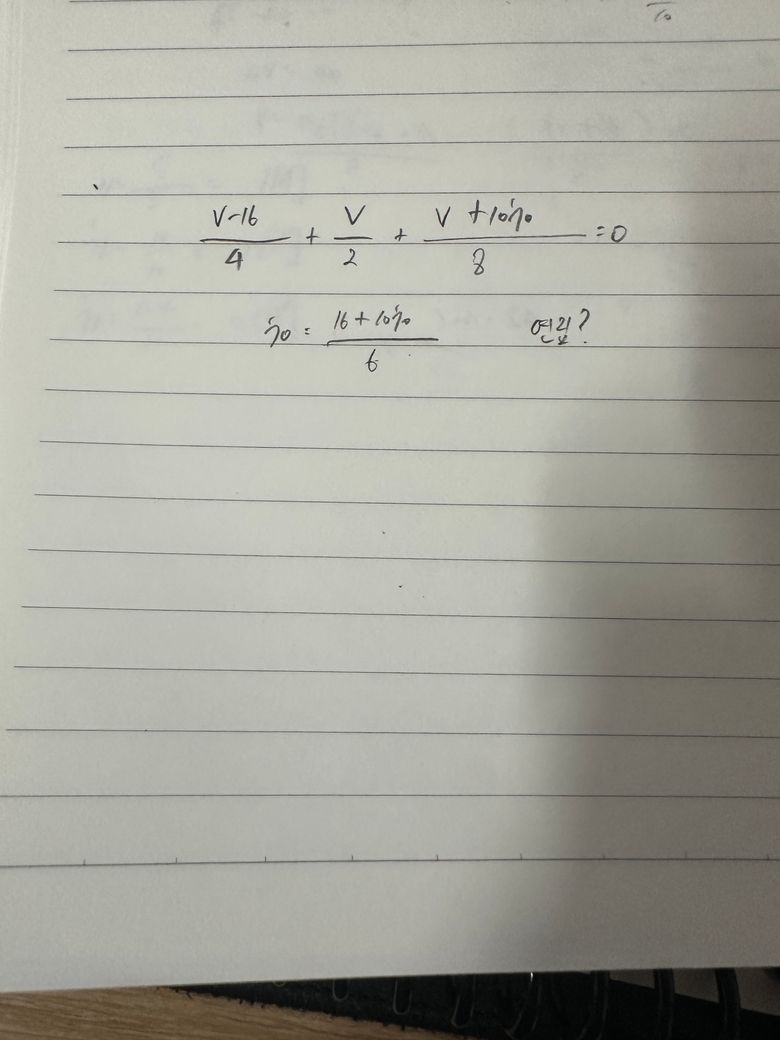 V-16/4 + V/2 + V+10i₀/8 = 0
i₀ = 16+10i₀/6